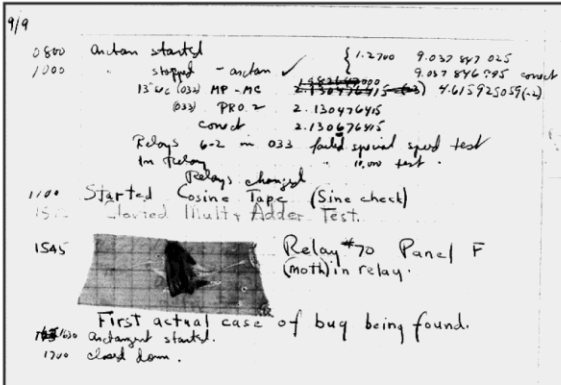 9/9
0800 Antan started { 1.2700 9.037 847 025
1000 " stopped - antan ✓ 9.037 846 995 conect
13"uc (032) MP-MC 2.130476415 (-3) 4.615925059(-2)
(033) PRO.2 2.130476415
conect 2.130676415
Relays 6-2 in 033 failed special speed test
In Relay " 10,000 test.
Relays changed
1100 Started Cosine Tape (Sine check)
1525 Started Mult+Adder Test.
1545 Relay #70 Panel F
(moth) in relay.
First actual case of bug being found.
1630 antangent started.
1700 closed down.